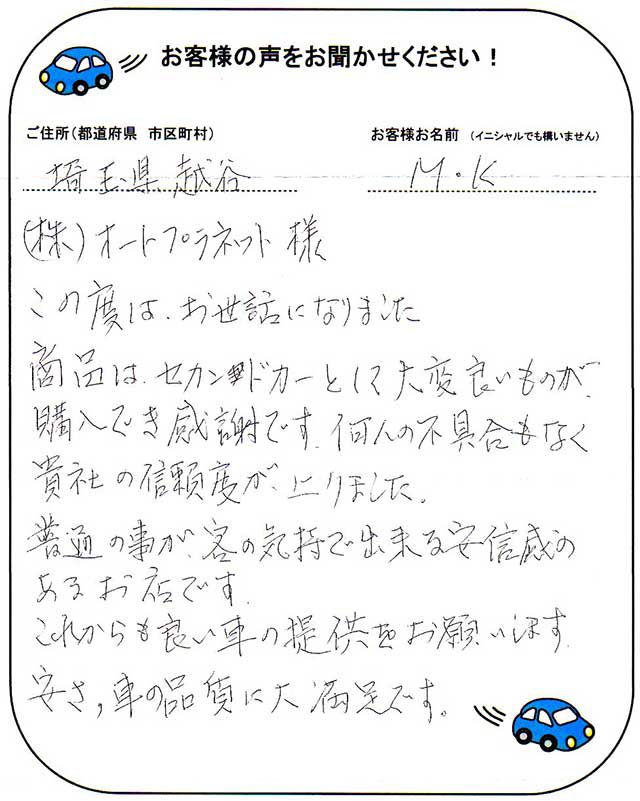 お客様の声をお聞かせください！
ご住所（都道府県 市区町村） お客様お名前 （イニシャルでも構いません）
埼玉県 越谷 M・K
（株）オートプラネット 様
この度は、お世話になりました
商品は、セカンドカーとして大変良いものが、
購入でき感謝です。何んの不具合もなく
貴社の信頼度が、上りました。
普通の事が、客の気持で出来る安信感の
あるお店です。
これからも良い車の提供をお願いします。
安さ，車の品質に大満足です。